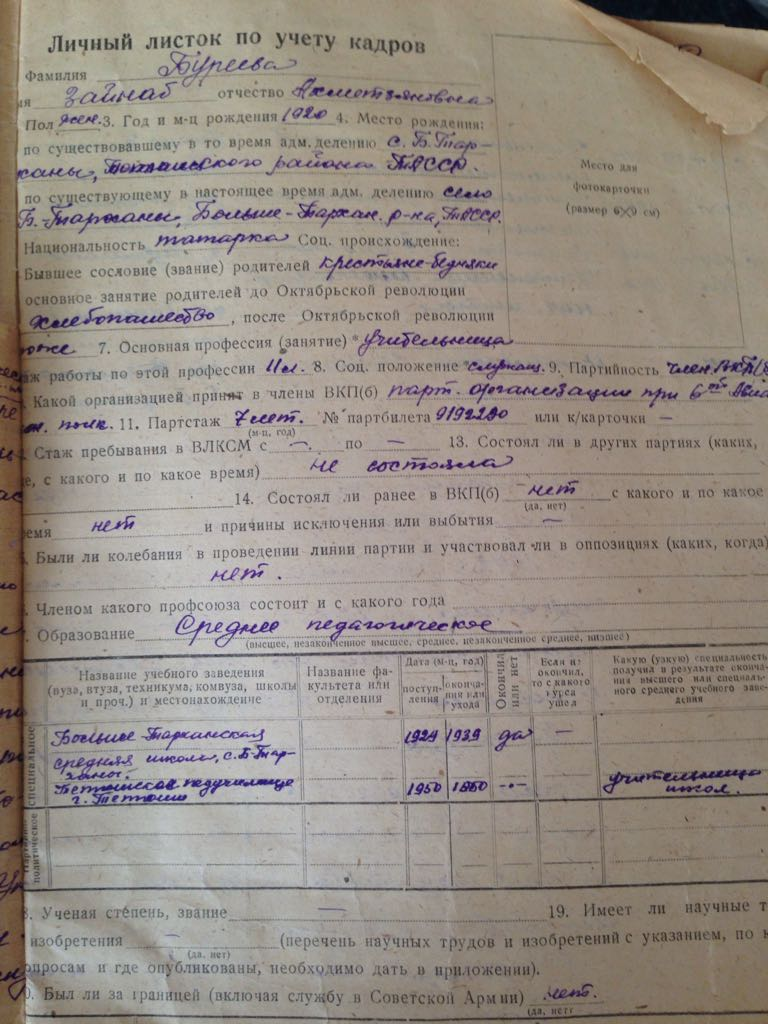 Личный листок по учету кадров
Фамилия Буреева
Зайнаб отчество
Пол жен. 3. Год и м-ц рождения 1920 4. Место рождения:
по существовавшему в то время адм. делению с. Б. Тар-
ханы, района ТАССР.
по существующему в настоящее время адм. делению село
Б.-Тарханы, Больше-Тархан. р-на, ТАССР.
Национальность татарка Соц. происхождение:
Бывшее сословие (звание) родителей крестьяне-бедняки
основное занятие родителей до Октябрьской революции
хлебопашество, после Октябрьской революции
тоже 7. Основная профессия (занятие) * учительница
аж работы по этой профессии 11 л. 8. Соц. положение служащ. 9. Партийность член ВКП(б
Какой организацией принят в члены ВКП(б) парт. организации при 6ой Авиа
полк. 11. Партстаж 7 лет. № партбилета 9192200 или к/карточки —
(м-ц, год)
Стаж пребывания в ВЛКСМ с —. по — 13. Состоял ли в других партиях (каких,
е, с какого и по какое время) не состояла
14. Состоял ли ранее в ВКП(б) нет с какого и по какое
(да, нет)
емя нет и причины исключения или выбытия —
Были ли колебания в проведении линии партии и участвовал ли в оппозициях (каких, когда)
нет.
Членом какого профсоюза состоит и с какого года
Образование Среднее педагогическое
(высшее, незаконченное высшее, среднее, незаконченное среднее, низшее)
Название учебного заведения (вуза, втуза, техникума, комвуза, школы и проч.) и местонахождение
Название факультета или отделения
Дата (м-ц, год)
поступления
окончания или ухода
Окончил или нет
Если не окончил, то с какого курса ушел
Какую (узкую) специальность получил в результате окончания высшего или специального среднего учебного заведения
специальное
Больше-Тарханская 1929 1939 да —
средняя школа, с. Б-Тар-
ханы.
Тетюшское педучилище 1950 1950 -"- учительница
г. Тетюши школ.
политическое
8. Ученая степень, звание — 19. Имеет ли научные т
изобретения — (перечень научных трудов и изобретений с указанием, по к
(да, нет)
опросам и где опубликованы, необходимо дать в приложении).
0. Был ли за границей (включая службу в Советской Армии) нет.
(да, нет)
Место для
фотокарточки
(размер 6×9 см)